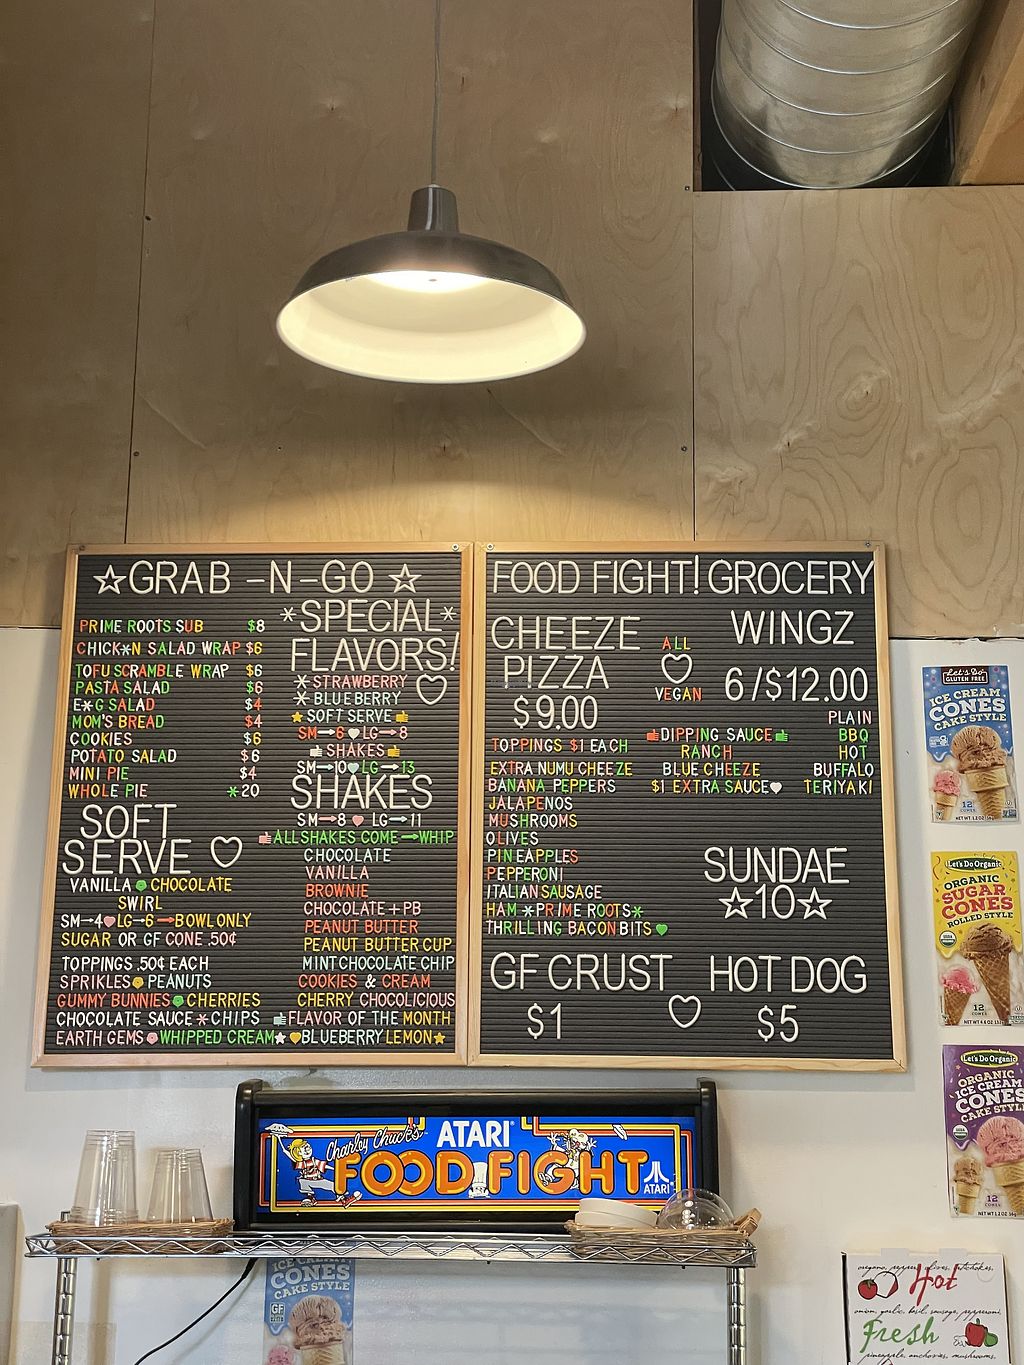 ☆GRAB-N-GO☆
PRIME ROOTS SUB $8
CHICK*N SALAD WRAP $6
TOFU SCRAMBLE WRAP $6
PASTA SALAD $6
E*G SALAD $4
MOM'S BREAD $4
COOKIES $6
POTATO SALAD $6
MINI PIE $4
WHOLE PIE *20
SOFT
SERVE ♡
VANILLA CHOCOLATE
SWIRL
SM→4 LG→6→BOWL ONLY
SUGAR OR GF CONE .50¢
TOPPINGS .50¢ EACH
SPRINKLES PEANUTS
GUMMY BUNNIES CHERRIES
CHOCOLATE SAUCE * CHIPS
EARTH GEMS WHIPPED CREAM★
*SPECIAL*
FLAVORS!
*STRAWBERRY
*BLUEBERRY
★SOFT SERVE
SM→6 LG→8
SHAKES
SM→10 LG→13
SHAKES
SM→8 LG→11
ALL SHAKES COME→WHIP
CHOCOLATE
VANILLA
BROWNIE
CHOCOLATE+PB
PEANUT BUTTER
PEANUT BUTTER CUP
MINT CHOCOLATE CHIP
COOKIES & CREAM
CHERRY CHOCOLICIOUS
FLAVOR OF THE MONTH
BLUEBERRY LEMON★
FOOD FIGHT! GROCERY
CHEEZE
PIZZA
$9.00
TOPPINGS $1 EACH
EXTRA NUMU CHEEZE
BANANA PEPPERS
JALAPENOS
MUSHROOMS
OLIVES
PINEAPPLES
PEPPERONI
ITALIAN SAUSAGE
HAM *PRIME ROOTS*
THRILLING BACON BITS
ALL
♡
VEGAN
WINGZ
6/$12.00
PLAIN
DIPPING SAUCE BBQ
RANCH HOT
BLUE CHEEZE BUFFALO
$1 EXTRA SAUCE TERIYAKI
SUNDAE
☆10☆
GF CRUST
$1
HOT DOG
$5
Charley Chuck's
ATARI
FOOD FIGHT
ATARI
Let's Do
GLUTEN FREE
ICE CREAM
CONES
CAKE STYLE
12
CONES
Let's Do Organic
ORGANIC
SUGAR
CONES
ROLLED STYLE
12
CONES
Let's Do Organic
ORGANIC
ICE CREAM
CONES
CAKE STYLE
12
CONES
ICE CREAM
CONES
CAKE STYLE
GF
Hot
onion, garlic, basil, sausage, pepperoni,
Fresh
pineapple, anchovies, mushrooms,